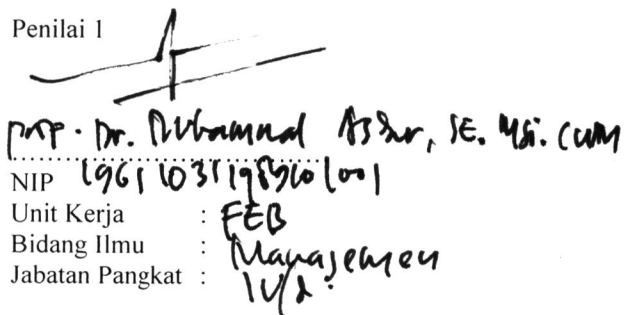 Penilai 1
Prof. Dr. Muhammad Asdar, SE. MSi. CWM
NIP
Unit Kerja : FEB
Bidang Ilmu : Manajemen
Jabatan Pangkat : IV/d.